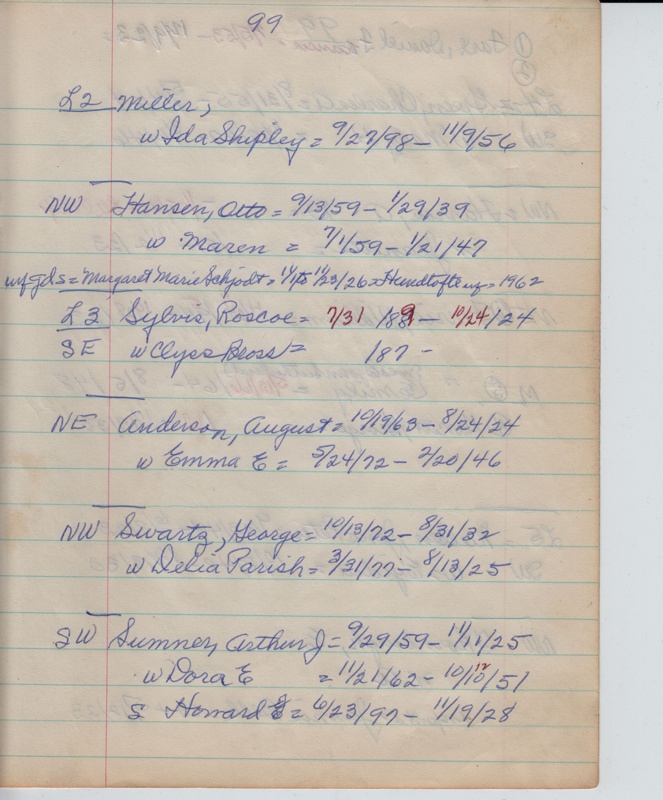 99
L2 Miller,
w Ida Shipley = 9/27/98 - 11/9/56
NW Hansen, Otto = 9/13/59 - 1/29/39
w Maren = 7/1/59 - 1/21/47
Margaret Marie Schjodt = 11/23/26 = 1962
L3 Sylvis, Roscoe = 7/31/1889 - 10/24/24
SE w Clyss Bross = /187 -
NE Anderson, August = 10/19/63 - 8/24/24
w Emma E = 5/24/72 - 2/20/46
NW Swartz, George = 10/13/72 - 8/31/32
w Delia Parish = 3/31/77 - 8/13/25
SW Sumner, Arthur J = 9/29/59 - 11/11/25
w Dora E = 11/21/62 - 10/12/51
S Howard = 6/23/97 - 11/19/28